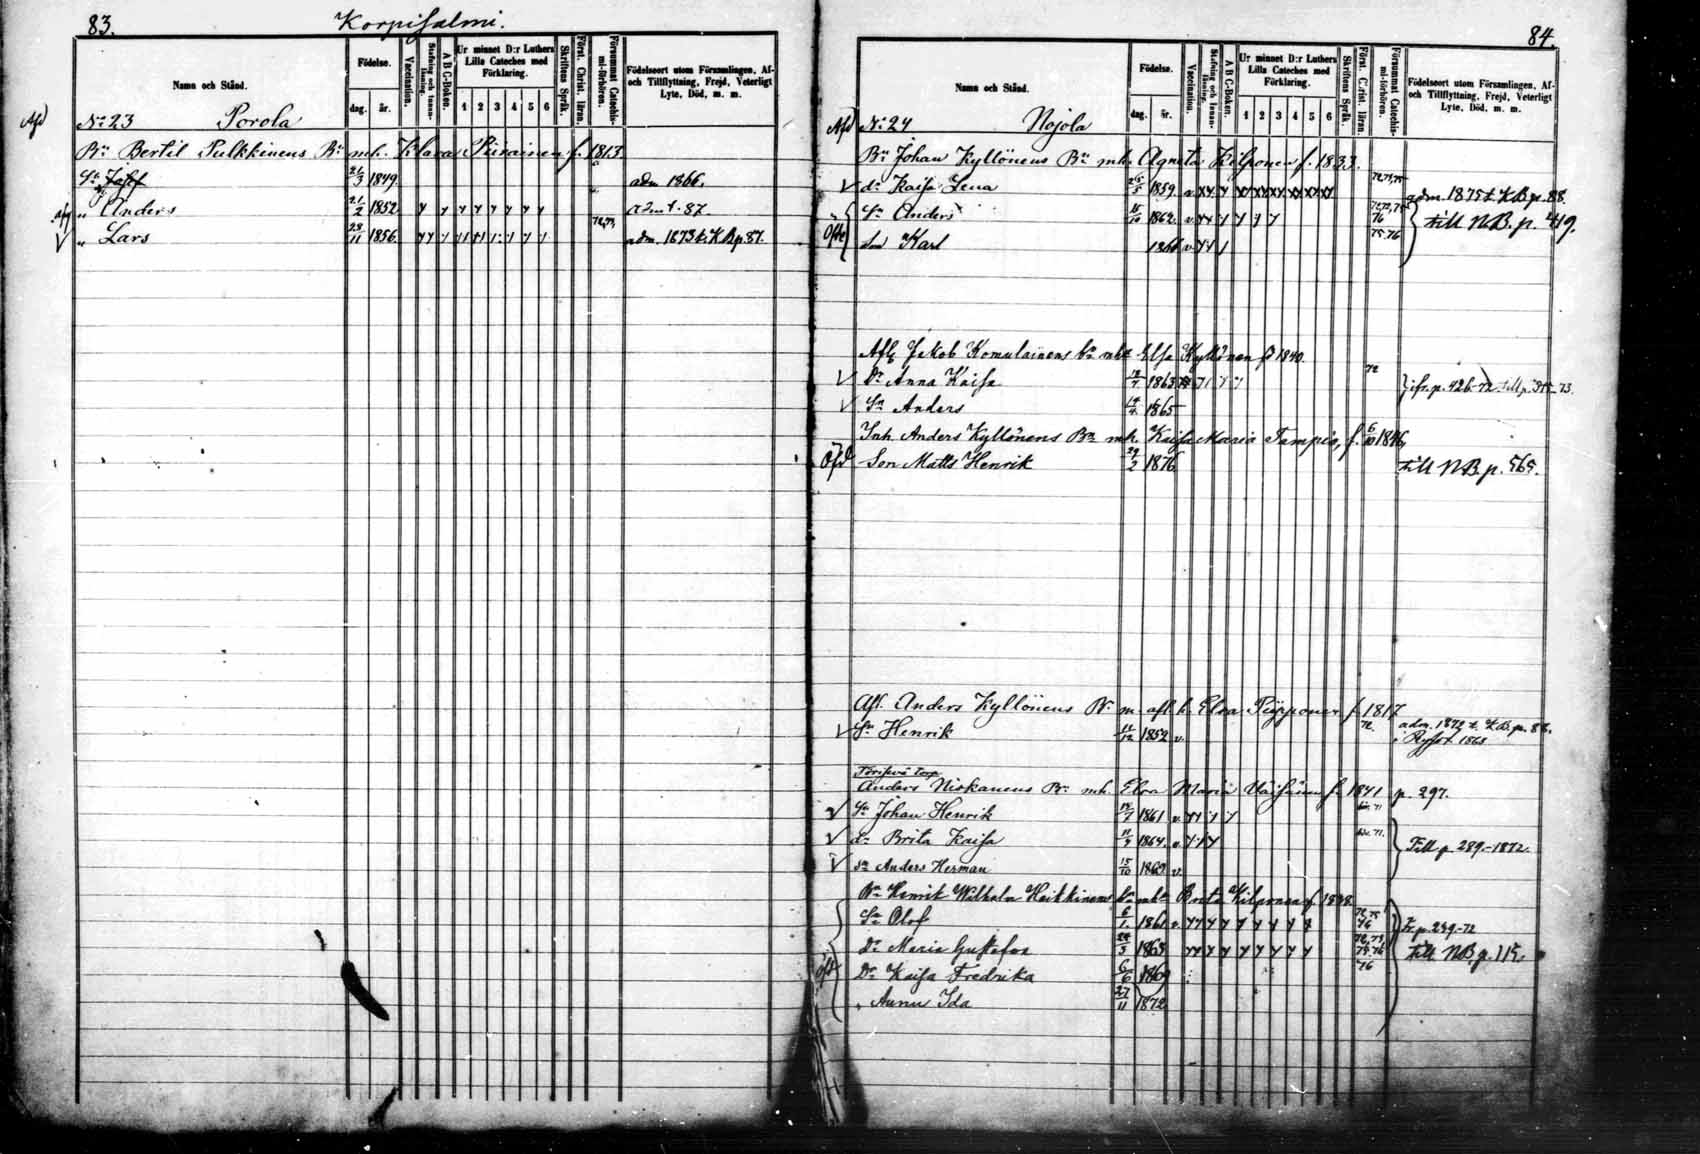 83.
Korpisalmi.
Namn och Stånd.
Födelse.
dag. år.
Vaccination.
Stafning och Innanläsning.
A B C-Boken.
Ur minnet D:r Luthers Lilla Cateches med Förklaring.
1 2 3 4 5 6
Skriftens Språk.
Först. Christ. läran.
Försummat Catechismi-förhören.
Födelseort utom Församlingen, Af- och Tillflyttning, Frejd, Veterligt Lyte, Död, m. m.
Afd No 23 Porola
Bn Bertil Pulkkinens Bn m.h. Klara Piirainen f. 1813
Sn Josef 21/3 1849. adm 1866.
" Anders 21/2 1852 adm t. 87.
" Lars 28/11 1856. 72,73, adm. 1873 t. K.B.p. 87.
84.
Namn och Stånd.
Födelse.
dag. år.
Vaccination.
Stafning och Innanläsning.
A B C-Boken.
Ur minnet D:r Luthers Lilla Cateches med Förklaring.
1 2 3 4 5 6
Skriftens Språk.
Först. Christ. läran.
Försummat Catechismi-förhören.
Födelseort utom Församlingen, Af- och Tillflyttning, Frejd, Veterligt Lyte, Död, m. m.
Afd No 24 Nojola
Bn Johan Kyllönens Bn m.h. Agneta Kilponen f. 1833.
dr Kaisa Lena 1859. v. 72,73,75 adm. 1875 t. K.B.p. 88.
Sn Anders 1862. v. 76 Till N.B. p. 419.
Son Karl 1866 v. 75.76
Afl. Jakob Komulainens bn mh Elsa Kyllönen f 1840.
Dr Anna Kaisa 1863 72 ifr. p. 426-72 till p. 315-73.
Sn Anders 1865
Inh. Anders Kyllönens Bn m.h. Kaisa Maria Tampio, f. 6/10 1846,
Son Matts Henrik 29/2 1876 Till N.B. p. 565.
Afl. Anders Kyllönens Bn m. afl. h. Elsa Piipponen f. 1817
Sn Henrik 1852 v. 72. adm. 1872 t. K.B.p. 88.
i Ryssl. 1868
torp
Anders Niskanens Bn m.h. Elsa Maria Väisänen f. 1841 p. 297.
Sn Johan Henrik 1861 v. 71
dr Brita Kaisa 11/9 1864. v. 71. Till p. 289.-1872.
Sn Anders Herman 15/10 1869 v.
Bn Henrik Wilhelm Heikkinens bn mh Brita Kilponen f. 1838
Sn Olof 6/1 1861 v. 72,75 76 Fr p. 289-72
Dr Maria Gustafva 24/3 1865 Till N.B. p. 115.
Dr Kaisa Fredrika 6/6 1869 76
" Anna Ida 27/11 1872